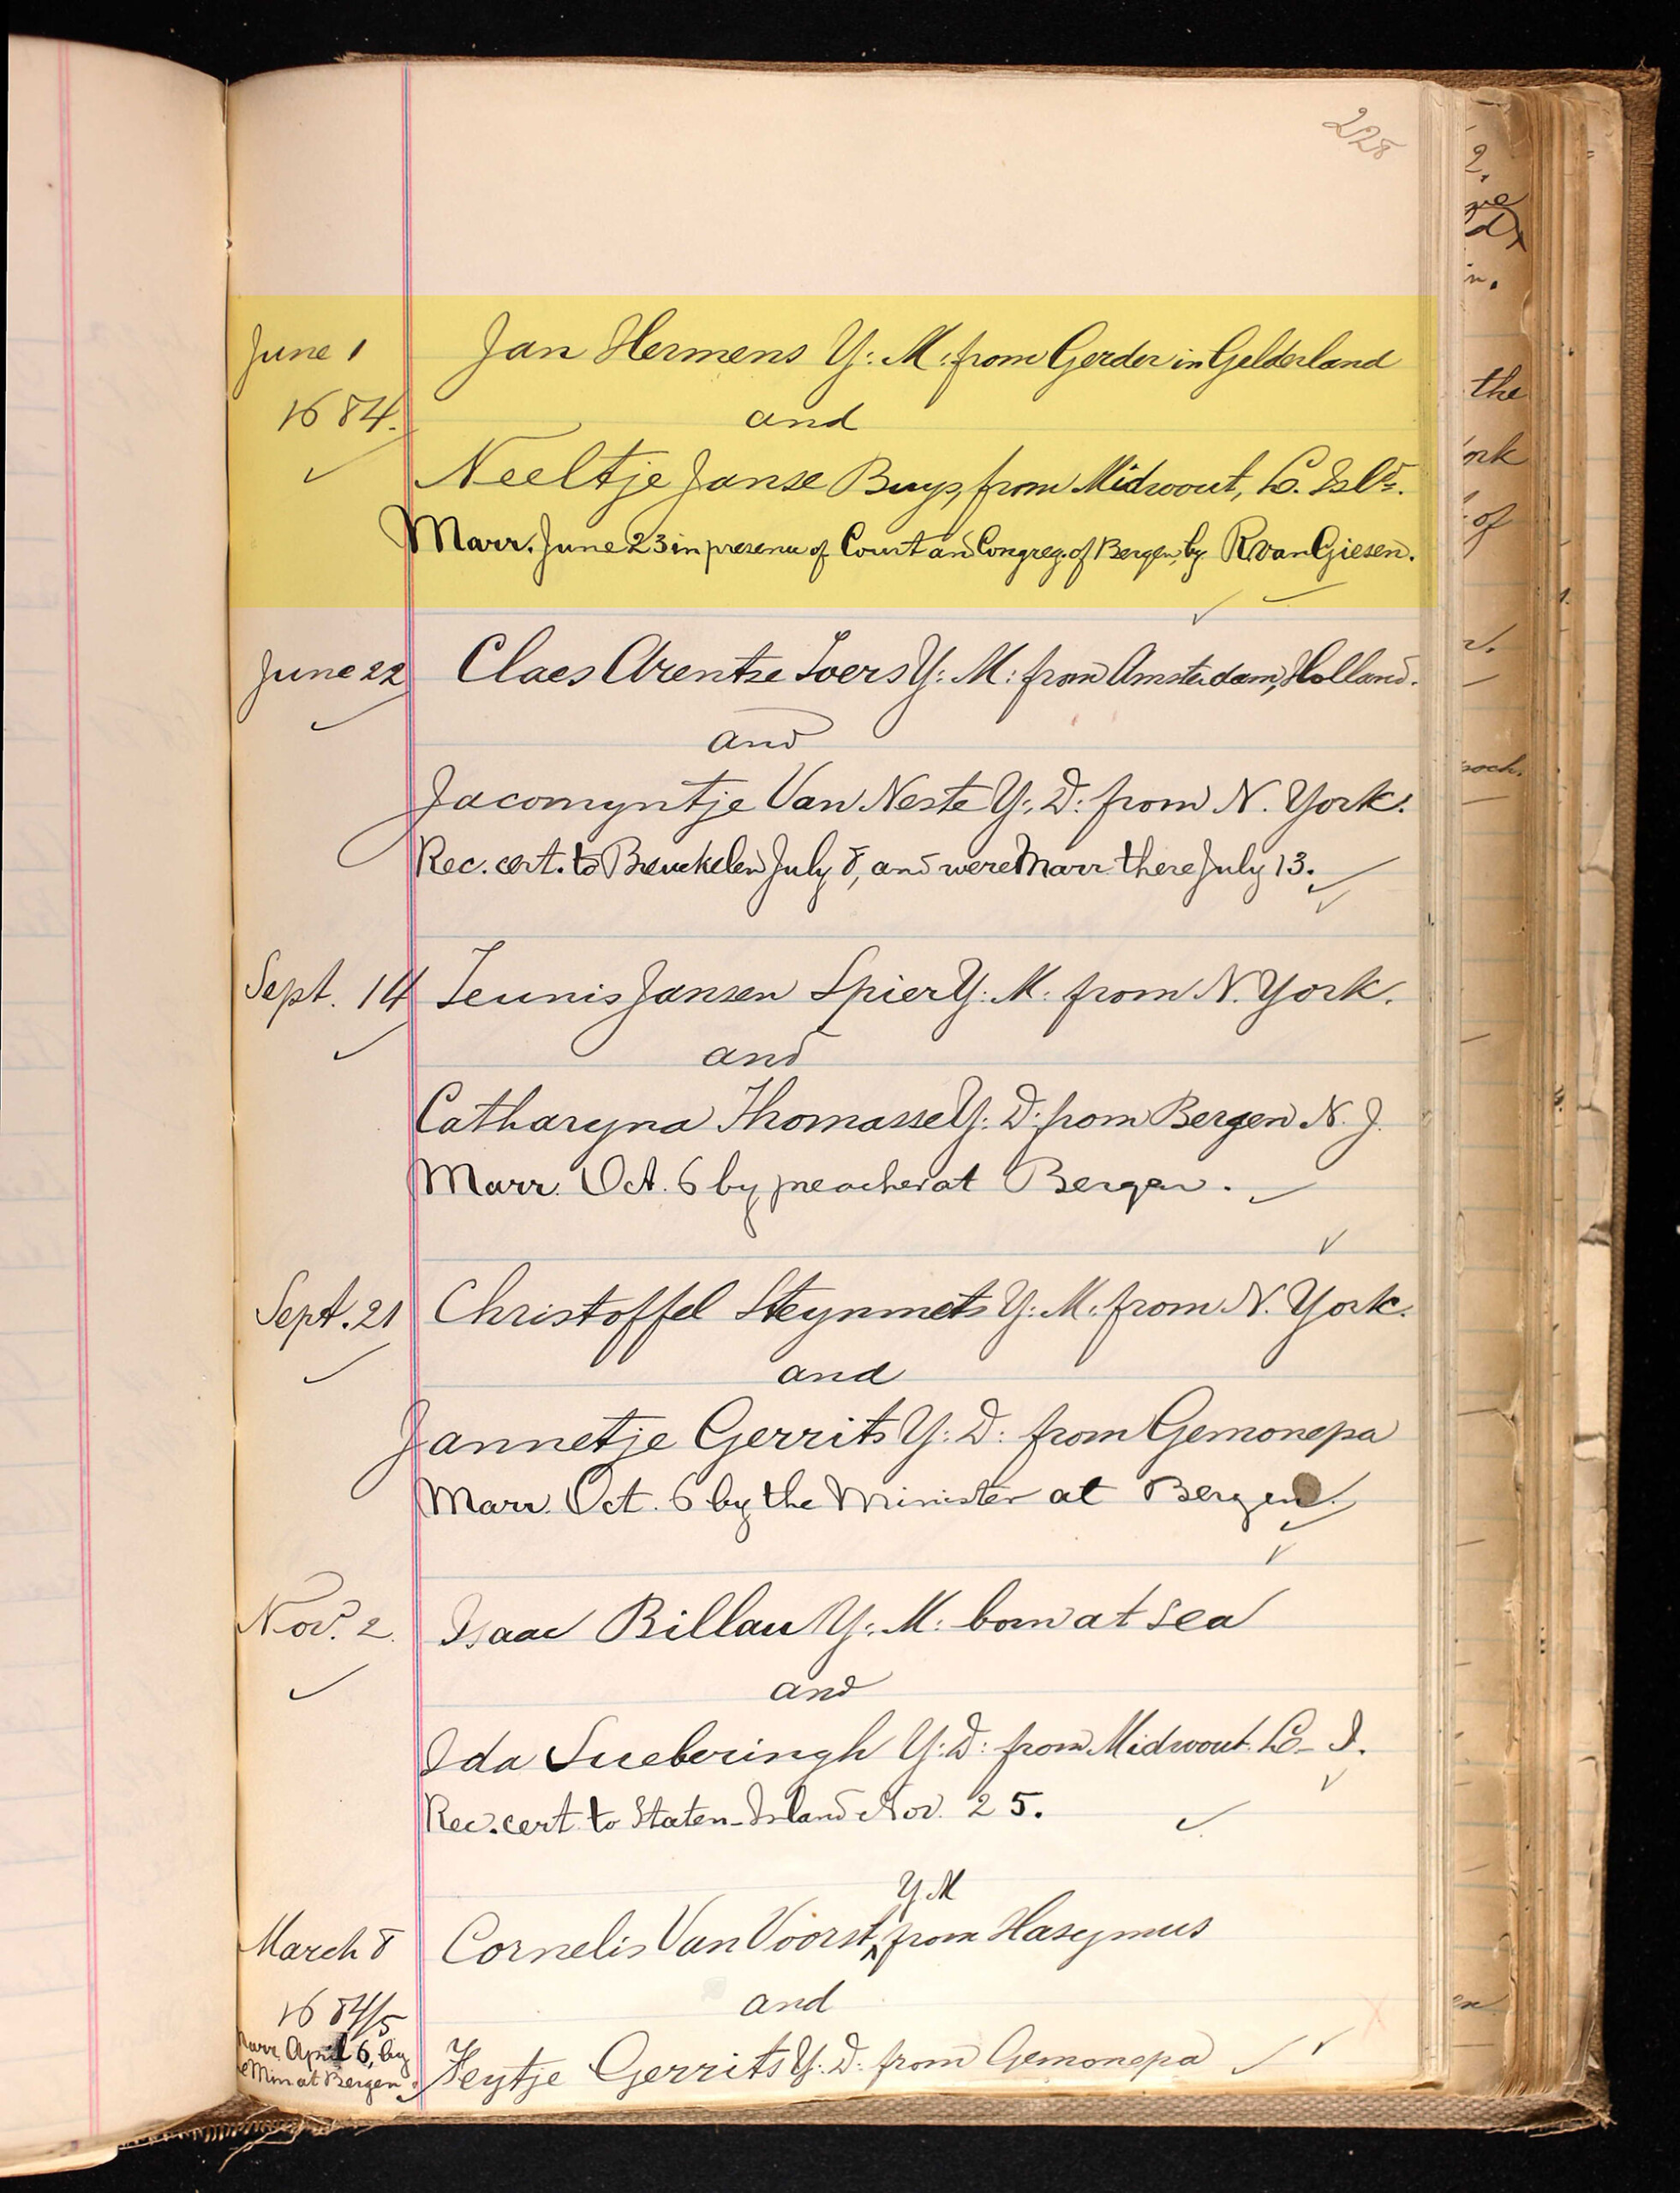 228
June 1 Jan Hermens Y: M: from Gerder in Gelderland
1684. and
Neeltje Janse Buys, from Midwout, L. Isld.
Marr. June 23 in presence of Court and Congreg. of Bergen, by R. van Giesen.
June 22 Claes Arentse Toers Y: M: from Amsterdam, Holland.
and
Jacomyntje Van Neste Y: D: from N. York.
Rec. cert. to Breuckelen July 8, and were Marr there July 13.
Sept. 14 Teunis Jansen Spier Y: M: from N. York.
and
Catharyna Thomasse Y: D: from Bergen N. J.
Marr. Oct. 6 by preacher at Bergen.
Sept. 21 Christoffel Steynmets Y: M: from N. York.
and
Jannetje Gerrits Y: D: from Gemonepa
Marr. Oct. 6 by the Minister at Bergen.
Nov. 2. Isaac Billau Y: M: born at sea
and
Ida Sueberingh Y: D: from Midwout L. I.
Rec. cert. to Staten-Island Nov. 25.
Y. M
March 8 Cornelis Van Voorst, from Haseymus
1684/5 and
Marr. April 6, by
Min at Bergen. Feytje Gerrits Y: D: from Gemonepa
2.
in.
the
of